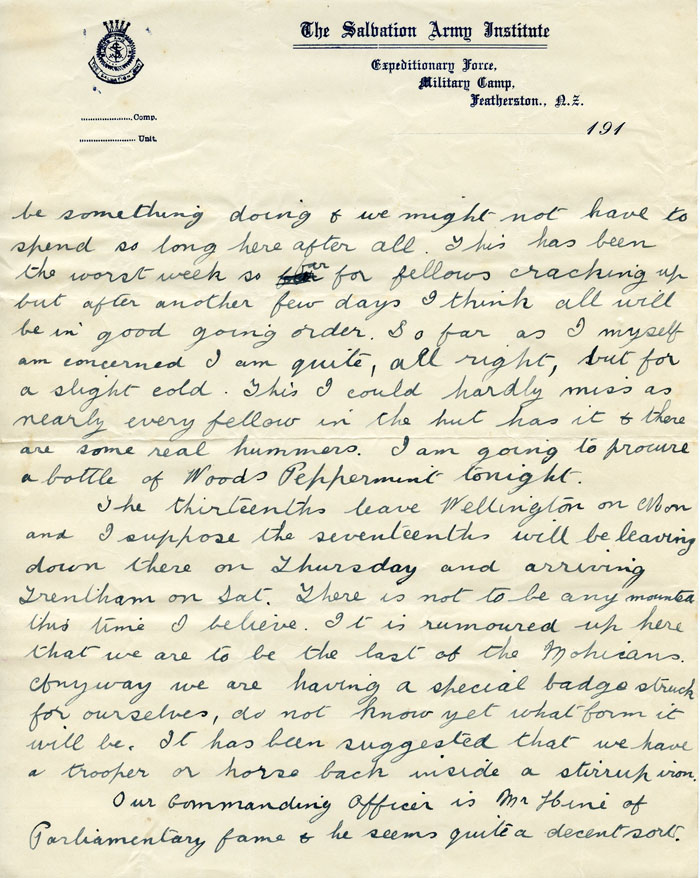 The Salvation Army Institute
Expeditionary Force,
Military Camp,
Featherston., N.Z.
..................... Comp.
..................... Unit.
191
be something doing & we might not have to
spend so long here after all. This has been
the worst week so far for fellows cracking up
but after another few days I think all will
be in good going order. So far as I myself
am concerned I am quite, all right, but for
a slight cold. This I could hardly miss as
nearly every fellow in the hut has it & there
are some real hummers. I am going to procure
a bottle of Woods Peppermint tonight.
The thirteenths leave Wellington on Mon
and I suppose the seventeenths will be leaving
down there on Thursday and arriving
Trentham on Sat. There is not to be any mounted
this time I believe. It is rumoured up here
that we are to be the last of the Mohicans.
Anyway we are having a special badge struck
for ourselves, do not know yet what form it
will be. It has been suggested that we have
a trooper or horse back inside a stirrup iron.
Our Commanding Officer is Mr Hine of
Parliamentary fame & he seems quite a decent sort.